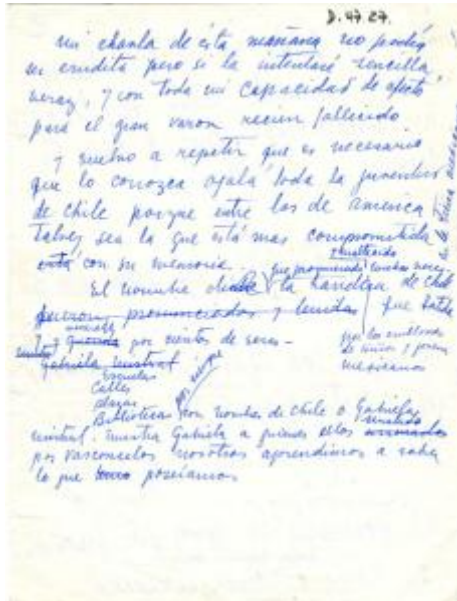 D. 47.27.
mi charla de ésta mañana no podía
ser erudita pero si la intentaré sencilla
veraz, y con toda mi capacidad de afecto
para el gran varon recien fallecido
y vuelvo a repetir que es necesario
que lo conozca ojalá toda la juventud
de Chile porque entre las de america
talvez sea la que está mas comprometida
está con su memoria.
que pronunciado muchas veces
El nombre de la bandera de Chile
fueron pronunciados y que
querida por cientos de veces -
por los millones
de niños y jovenes
mexicanos
Gabriela mistral
Escuelas
Calles
plazas
Bibliotecas con nombre de Chile o Gabriela
mistral. nuestra Gabriela a quienes ellos
por Vasconcelos nosotros aprendimos a saber
lo que poseíamos